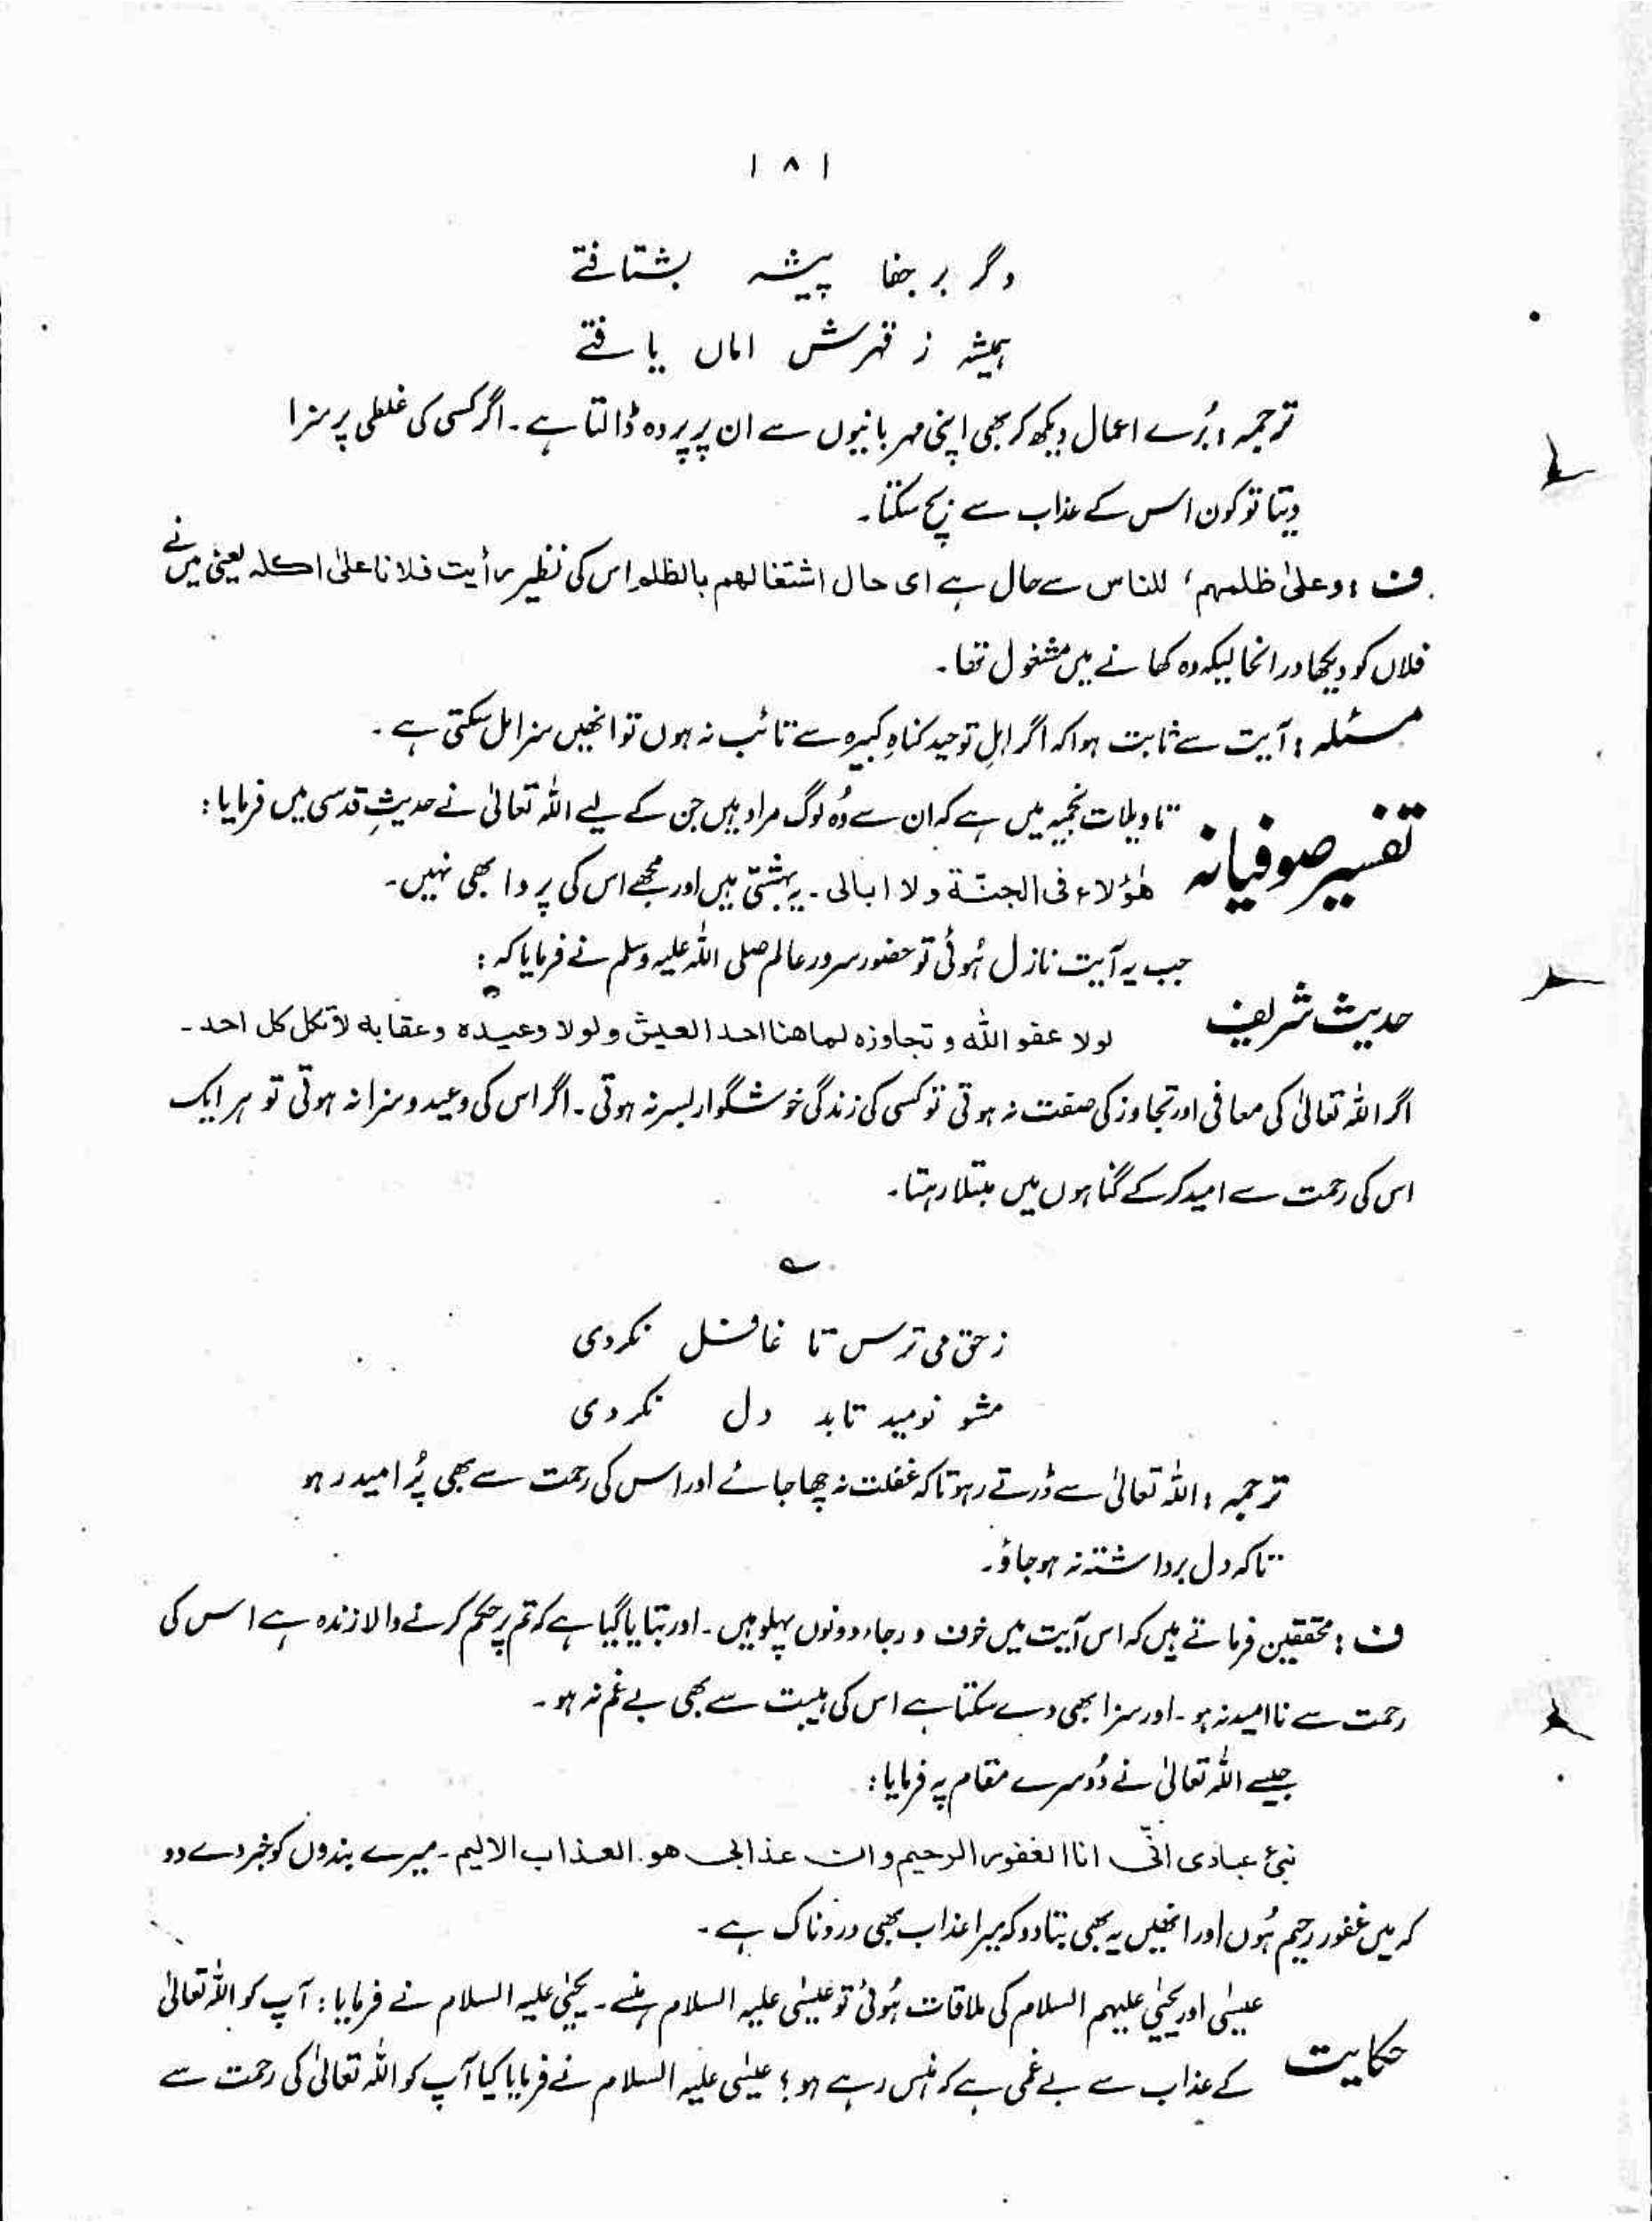 ۱۸۱
وگر بر جفا پیشہ بشتافتے
ہمیشہ ز قہرش اماں یافتے
ترجمہ: بُرے اعمال دیکھ کر بھی اپنی مہربانیوں سے ان پر پردہ ڈالتا ہے۔ اگر کسی کی غلطی پر سزا
دیتا تو کون اس کے عذاب سے بچ سکتا۔
ف: وعلیٰ ظلمہم، للناس سے حال ہے ای حال اشتغالھم بالظلم اس کی نظیر رأیت فلانا علیٰ اکلہ یعنی میں نے
فلاں کو دیکھا درانحالیکہ وہ کھانے میں مشغول تھا۔
مسئلہ: آیت سے ثابت ہوا کہ اگر اہلِ توحید گناہِ کبیرہ سے تائب نہ ہوں تو انھیں سزا مل سکتی ہے۔
تفسیر صوفیانہ تاویلات نجمیہ میں ہے کہ ان سے وُہ لوگ مراد ہیں جن کے لیے اللہ تعالیٰ نے حدیثِ قدسی میں فرمایا:
ھٰؤلاء فی الجنّۃ ولا ابالی۔ یہ بہشتی ہیں اور مجھے اس کی پروا بھی نہیں۔
حدیث شریف جب یہ آیت نازل ہُوئی تو حضور سرور عالم صلی اللہ علیہ وسلم نے فرمایا کہ:
لولا عفو اللہ وتجاوزہ لما ھنا احد العیش ولولا وعیدہ وعقابہ لاتکل کل احد۔
اگر اللہ تعالیٰ کی معافی اور تجاوز کی صفت نہ ہوتی تو کسی کی زندگی خوشگوار بسر نہ ہوتی۔ اگر اس کی وعید و سزا نہ ہوتی تو ہر ایک
اس کی رحمت سے امید کرکے گناہوں میں مبتلا رہتا۔
؎
ز حق می ترس تا غافل نگردی
مشو نومید تا بد دل نگردی
ترجمہ: اللہ تعالیٰ سے ڈرتے رہو تاکہ غفلت نہ چھا جائے اور اس کی رحمت سے بھی پُر امید رہو
تاکہ دل برداشتہ نہ ہو جاؤ۔
ف: محققین فرماتے ہیں کہ اس آیت میں خوف و رجاء دونوں پہلو ہیں۔ اور بتایا گیا ہے کہ تم پر حکم کرنے والا زندہ ہے اس کی
رحمت سے ناامید نہ ہو۔ اور سزا بھی دے سکتا ہے اس کی ہیبت سے بھی بے غم نہ ہو۔
جیسے اللہ تعالیٰ نے دُوسرے مقام پہ فرمایا:
نبیٔ عبادی انّی انا الغفور الرحیم وان عذابی ھو العذاب الالیم۔ میرے بندوں کو خبر دے دو
کہ میں غفور رحیم ہُوں اور انھیں یہ بھی بتا دو کہ میرا عذاب بھی دردناک ہے۔
حکایت عیسٰی اور یحیٰی علیہم السلام کی ملاقات ہُوئی تو عیسٰی علیہ السلام ہنسے۔ یحیٰی علیہ السلام نے فرمایا: آپ کو اللہ تعالیٰ
کے عذاب سے بے غمی ہے کہ ہنس رہے ہو؟ عیسٰی علیہ السلام نے فرمایا کیا آپ کو اللہ تعالیٰ کی رحمت سے